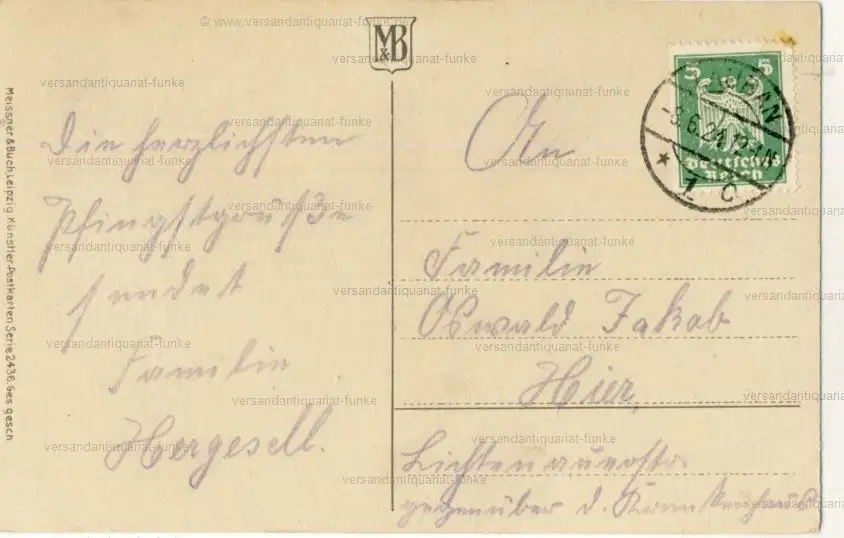 © www.versandantiquariat-funke.de
M&B
Meissner & Buch, Leipzig. Künstler-Postkarten Serie 2436. Ges. gesch
Die herzlichsten
Pfingstgrüße
sendet
Familie
Hergesell.
5 5
Deutsches
Reich
LAUBAN
-8.6.24.
* 1 c
An
Familie
Oswald Jakob
Hier,
Lichtenauerstr.
gegenüber d. Krankenhaus
versandantiquariat-funke